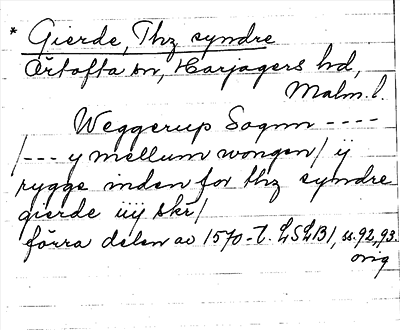 * Gierde, Thz syndre
Örtofta sn, Harjagers hd,
Malm. l.
Weggerup Sognn ----
/--- y mellum wongen/ ij
rygge inden for thz syndre
gierde iiij skr/
förra delen av 1570-t. LSLB1, ss. 92, 93.
orig